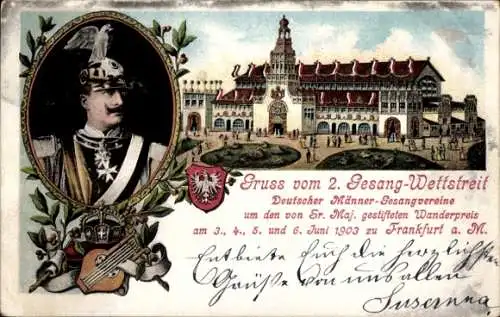 Gruss vom 2. Gesang-Wettstreit
Deutscher Männer-Gesangvereine
um den von Sr. Maj. gestifteten Wanderpreis
am 3., 4., 5. und 6. Juni 1903 zu Frankfurt a. M.
Entbiete Euch die herzlichsten
Grüsse von uns allen